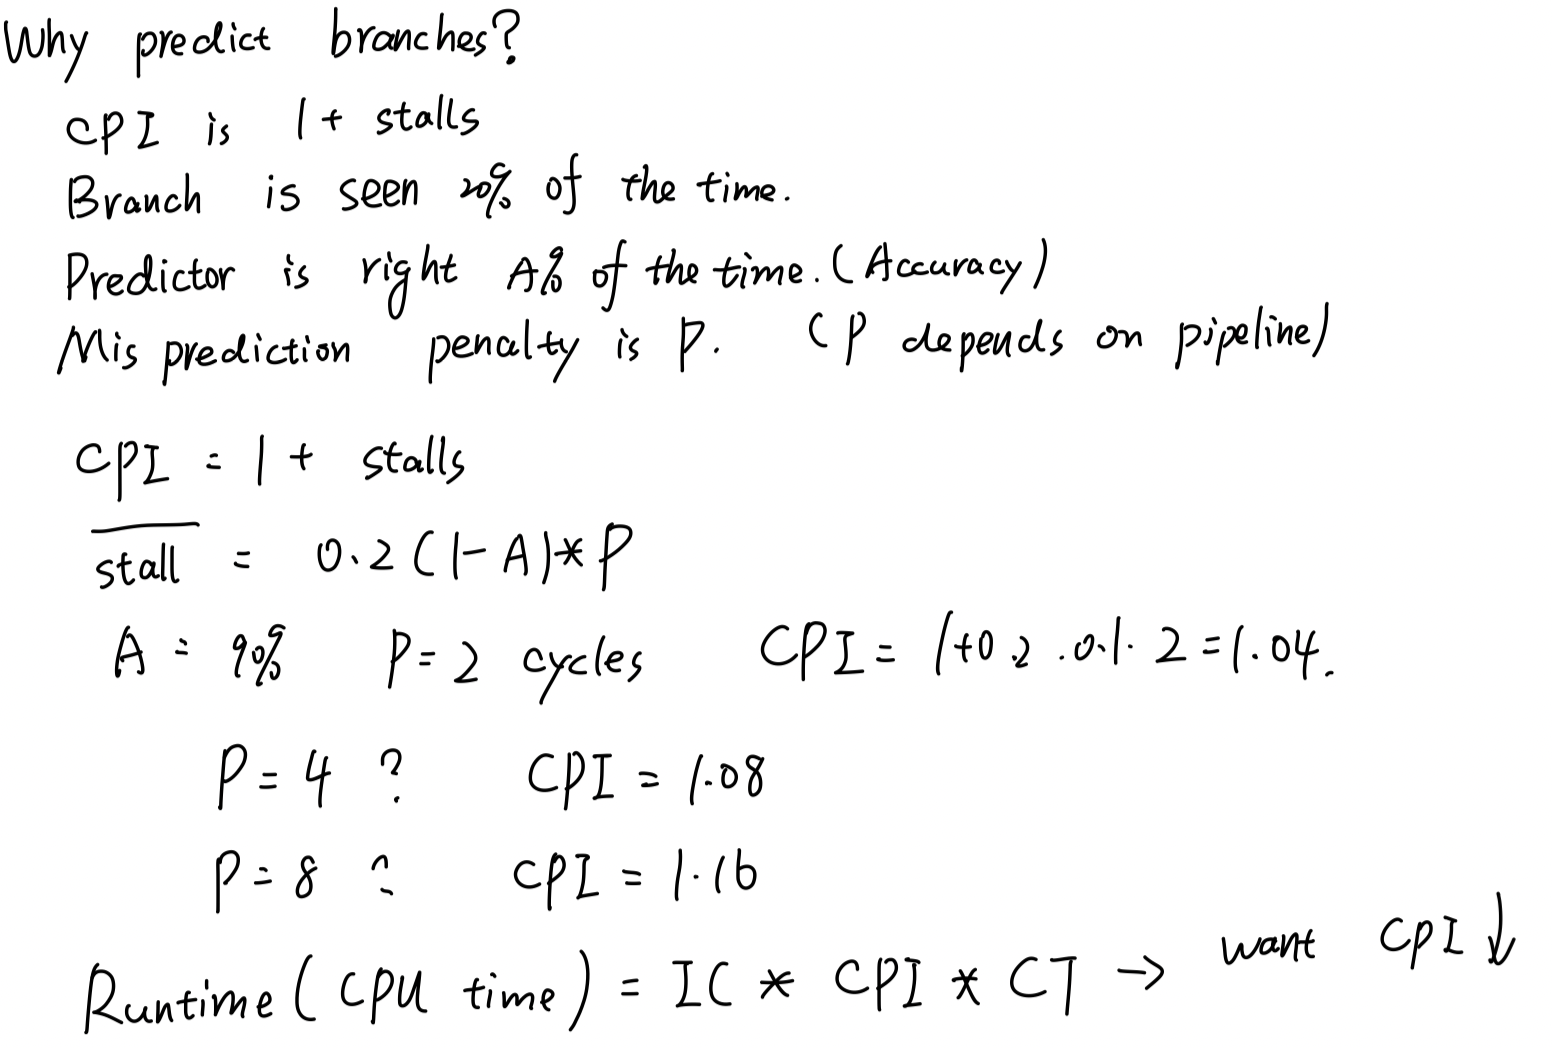 Why predict branches?
CPI is 1 + stalls
Branch is seen 20% of the time.
Predictor is right A% of the time. (Accuracy)
Mis prediction penalty is P. (P depends on pipeline)
CPI = 1 + stalls
stall = 0.2 (1 - A) * P
A = 90% P = 2 cycles CPI = 1+0.2 . 0.1 . 2 = 1.04.
P = 4 ? CPI = 1.08
P = 8 ? CPI = 1.16
Runtime (CPU time) = IC * CPI * CT → want CPI ↓